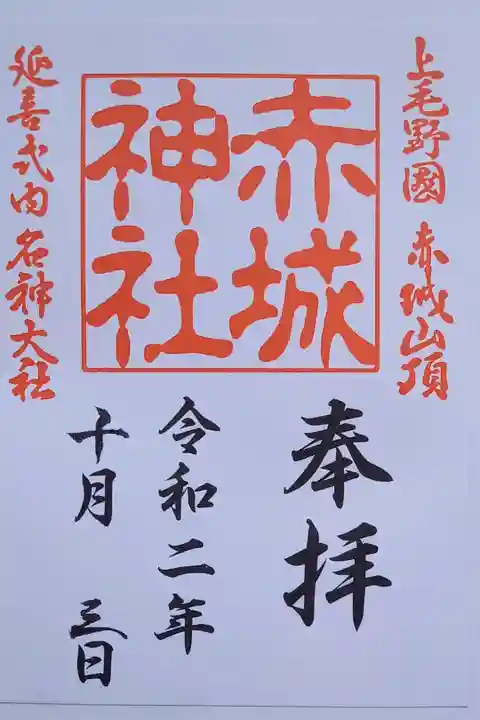 上毛野國 赤城山頂
赤城
神社
延喜式内名神大社
奉拝
令和二年
十月 三日